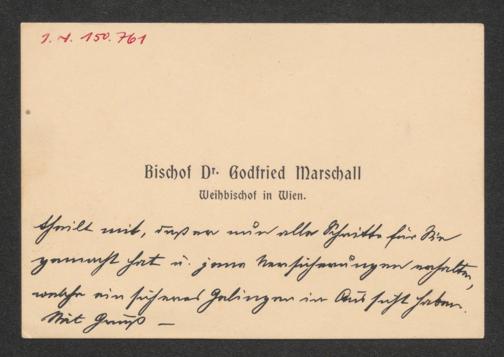 I. N. 150.761
Bischof Dr. Godfried Marschall
Weihbischof in Wien.
theilt mit, daß er nun alle Schritte für Sie
gemacht hat u. jene Versicherungen erhalten,
welche ein sicheres Gelingen in Aussicht haben.
Mit Gruß –